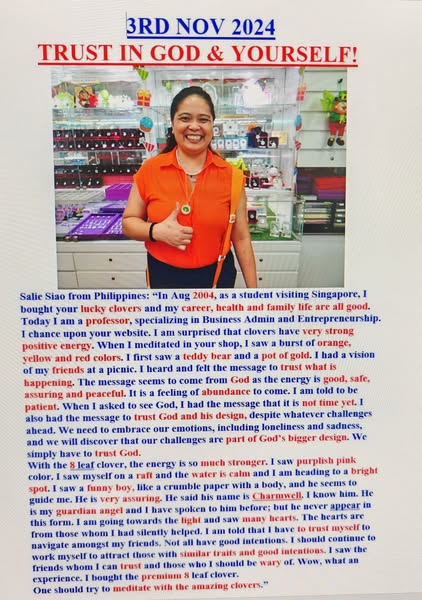 3RD NOV 2024
TRUST IN GOD & YOURSELF!
Salie Siao from Philippines: “In Aug 2004, as a student visiting Singapore, I
bought your lucky clovers and my career, health and family life are all good.
Today I am a professor, specializing in Business Admin and Entrepreneurship.
I chance upon your website. I am surprised that clovers have very strong
positive energy. When I meditated in your shop, I saw a burst of orange,
yellow and red colors. I first saw a teddy bear and a pot of gold. I had a vision
of my friends at a picnic. I heard and felt the message to trust what is
happening. The message seems to come from God as the energy is good, safe,
assuring and peaceful. It is a feeling of abundance to come. I am told to be
patient. When I asked to see God, I had the message that it is not time yet. I
also had the message to trust God and his design, despite whatever challenges
ahead. We need to embrace our emotions, including loneliness and sadness,
and we will discover that our challenges are part of God’s bigger design. We
simply have to trust God.
With the 8 leaf clover, the energy is so much stronger. I saw purplish pink
color. I saw myself on a raft and the water is calm and I am heading to a bright
spot. I saw a funny boy, like a crumble paper with a body, and he seems to
guide me. He is very assuring. He said his name is Charmwell. I know him. He
is my guardian angel and I have spoken to him before; but he never appear in
this form. I am going towards the light and saw many hearts. The hearts are
from those whom I had silently helped. I am told that I have to trust myself to
navigate amongst my friends. Not all have good intentions. I should continue to
work myself to attract those with similar traits and good intentions. I saw the
friends whom I can trust and those who I should be wary of. Wow, what an
experience. I bought the premium 8 leaf clover.
One should try to meditate with the amazing clovers.”